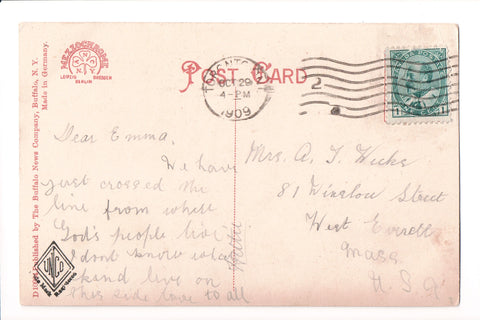 POST CARD
TORONTO
OCT 29
4-PM
1909
2
1
1
MEZZOCHROME
A.N.C.
N.Y.
LEIPZIG DRESDEN
BERLIN
Published by The Buffalo News Company, Buffalo, N. Y.
Made in Germany.
Dear Emma.
We have
just crossed the
line from where
God's people live
I dont know what
kand live on
this side love to all
Hattie
Mrs. A. T. Wicks
81 Winslow Street
West Everett
Mass
U.S.A
UNCO